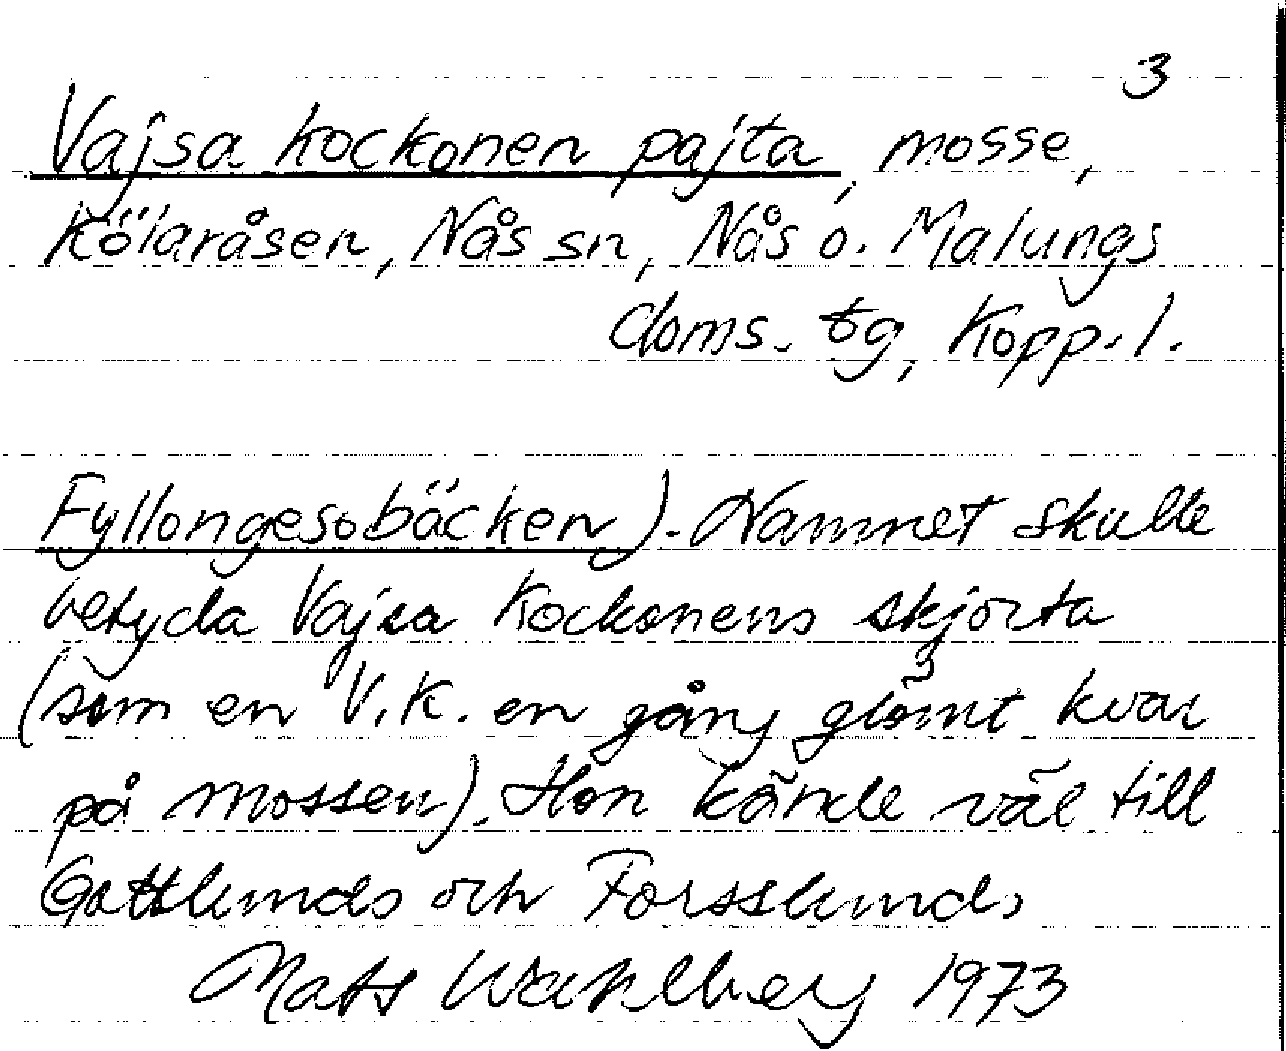 3
Vajsa kockonen pajta, mosse,
Kölaråsen, Nås sn, Nås o. Malungs
doms. tg, Kopp. l.
Fyllongesobäcken). Namnet skulle
betyda Vajsa Kockonens skjorta
(som en V.K. en gång glömt kvar
på mossen). Hon kände väl till
Gottlunds och Forsslunds
Mats Wahlberg 1973